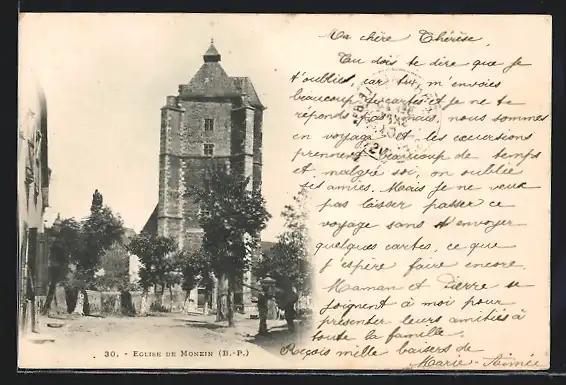 Ma chère Thérèse,
Tu dois te dire que je
t'oublies, car tu m'envoies
beaucoup de cartes et je ne te
reponds pas mais, nous sommes
en voyage et les excursions
prennent beaucoup de temps
et malgré soi, on oublie
ses amies. Mais je ne veux
pas laisser passer ce
voyage sans t'envoyer
quelques cartes, ce que
j'espère faire encore.
Maman et Pierre se
joignent à moi pour
presenter leurs amitiés à
toute la famille.
Reçois mille baisers de
Marie-Aimée
30. - EGLISE DE MONEIN (B.-P.)